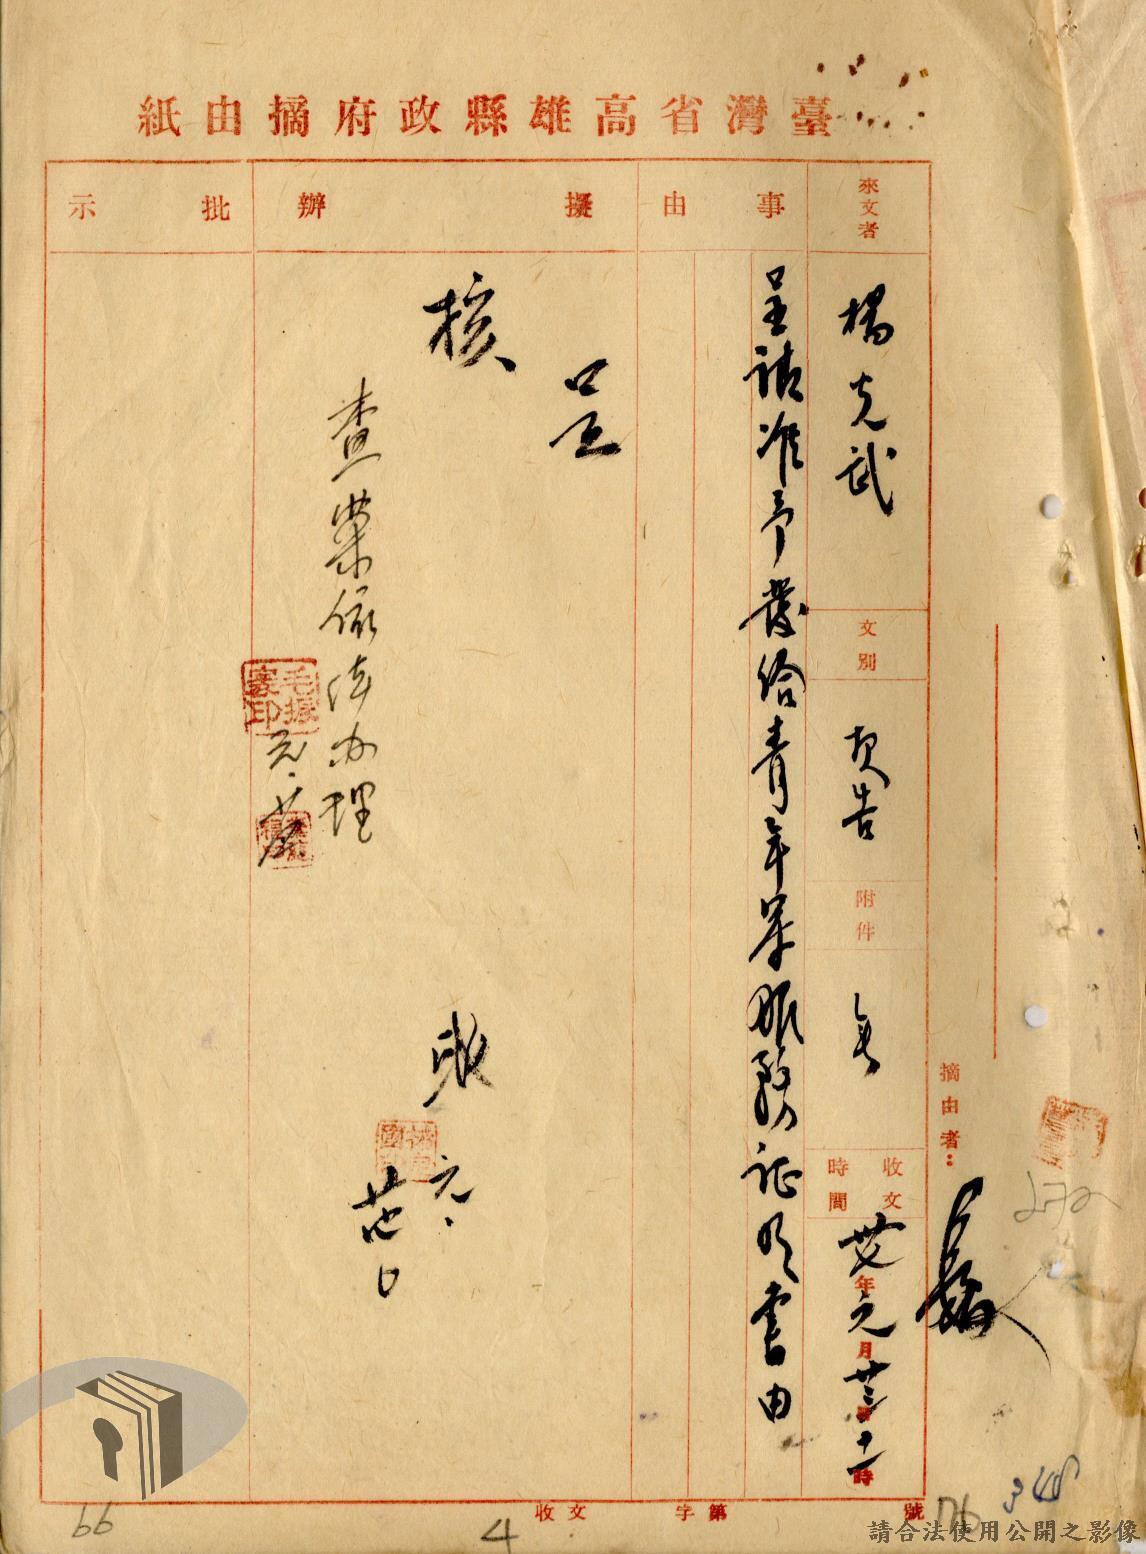 臺灣省高雄縣政府摘由紙
來文者
楊克武
文別
報告
附件
無
收文時間
卅七年元月廿三日十一時
摘由者：
事由
呈請准予發給青年軍服務証明書由
擬辦
呈
核
查案依法办理
元.
職
元.
廿四日
批示
收文 字第 號
66
4
76
348
272
請合法使用公開之影像